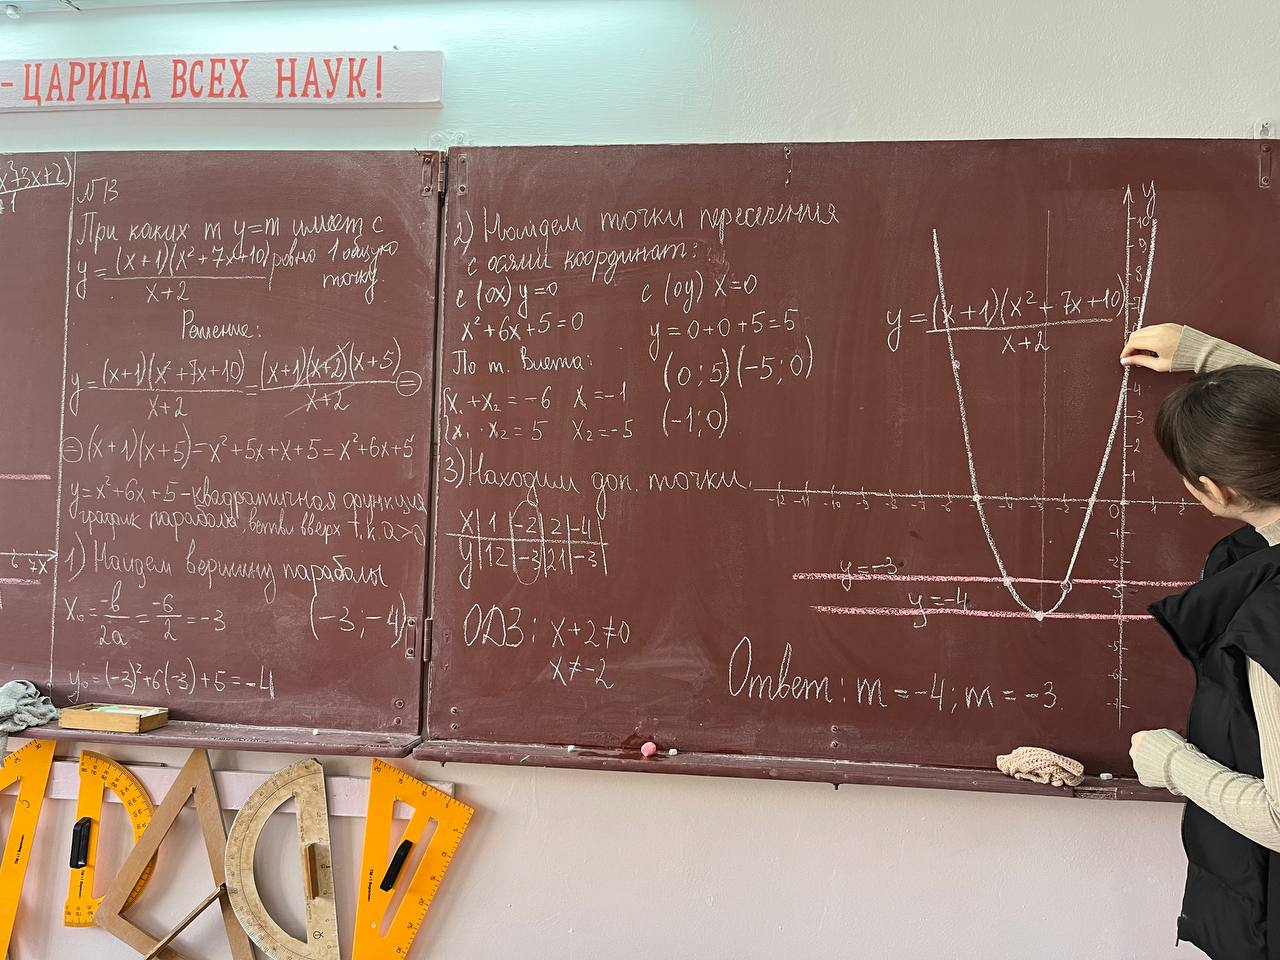 - ЦАРИЦА ВСЕХ НАУК!
x²+3x+2)
№13
При каких m y=m имеет с
y = (x+1)(x²+7x+10) / x+2 ровно 1 общую точку.
Решение:
y = (x+1)(x²+7x+10) / x+2 = (x+1)(x+2)(x+5) / x+2 =
= (x+1)(x+5) = x²+5x+x+5 = x²+6x+5
y = x²+6x+5 - квадратичная функция
график парабола, ветви вверх т.к. a>0
1) Найдем вершину параболы
x₀ = -b/2a = -6/2 = -3 (-3; -4)
y₀ = (-3)²+6(-3)+5 = -4
6 7 x
2) Найдем точки пересечения
с осями координат:
с (ox) y=0
x²+6x+5=0
По т. Виета:
x₁+x₂ = -6 x = -1
x₁·x₂ = 5 x₂ = -5
с (oy) x=0
y=0+0+5=5
(0; 5) (-5; 0)
(-1; 0)
3) Находим доп. точки.
x | 1 | -2 | 2 | -4
y | 12 | -3 | 21 | -3
ОДЗ: x+2≠0
x≠-2
y = (x+1)(x²+7x+10) / x+2
y
10
9
8
7
4
3
2
1
-12 -11 -10 -9 -8 -7 -6 -5 -4 -3 -2 -1 0 1 2
-3
-5
-6
-7
y=-3
y=-4
Ответ: m = -4; m = -3